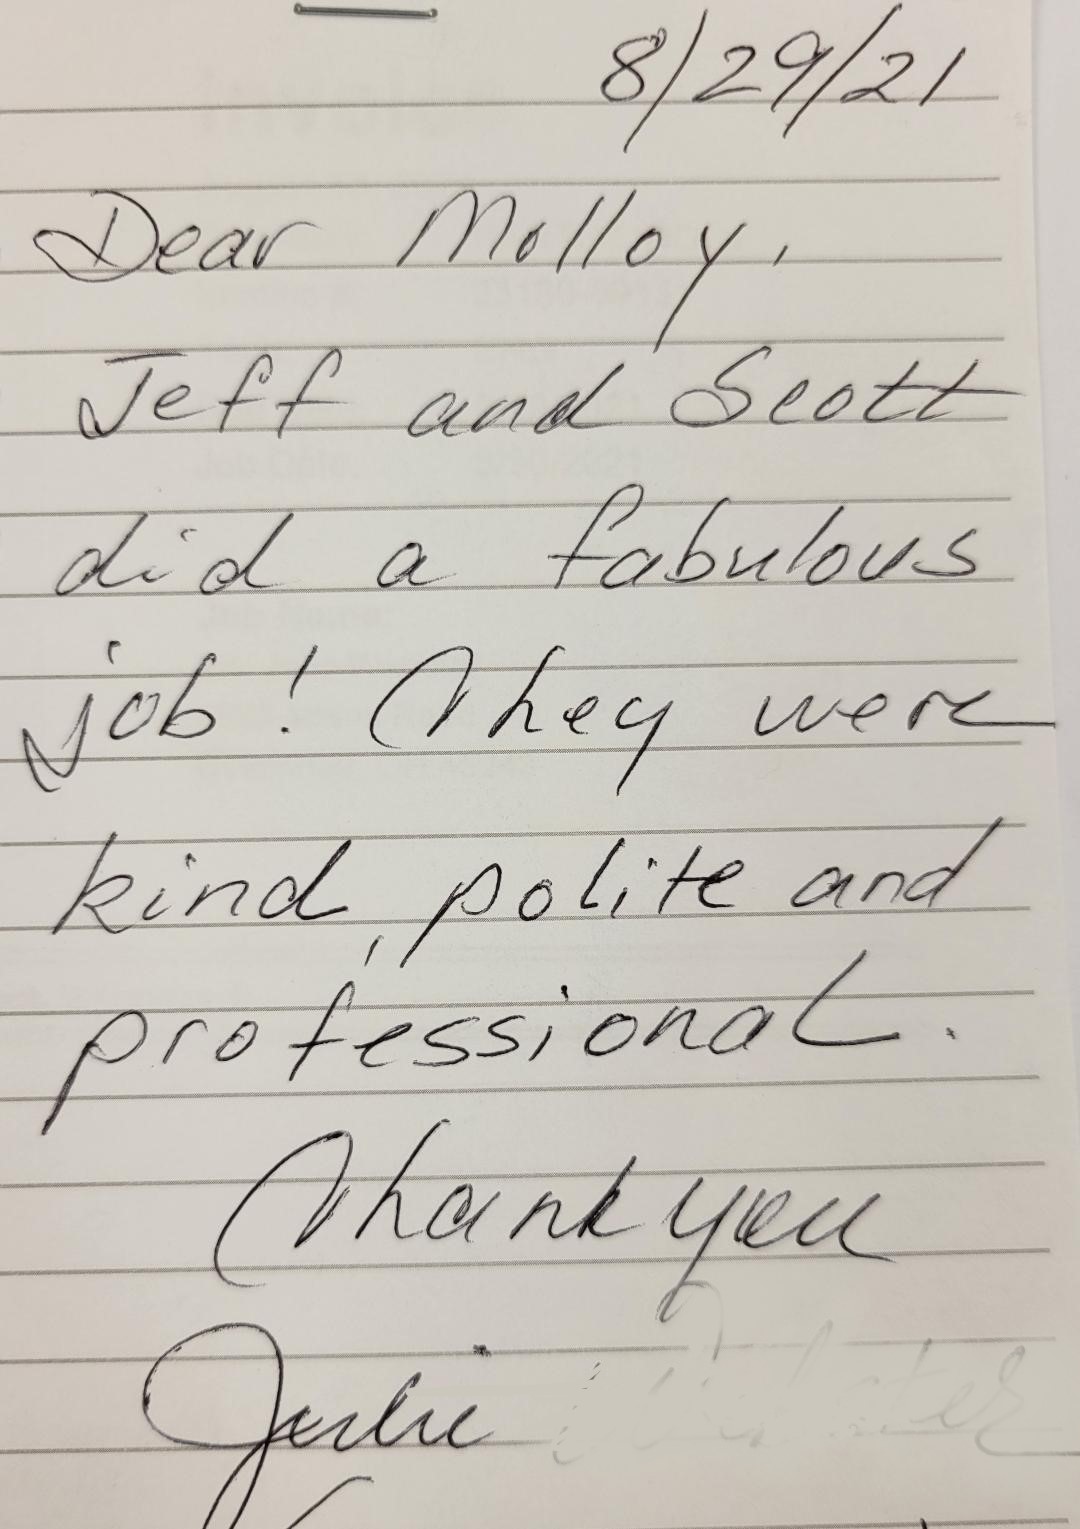 8/29/21
Dear Molloy,
Jeff and Scott
did a fabulous
job! They were
kind, polite and
professional.
Thank you
Julie